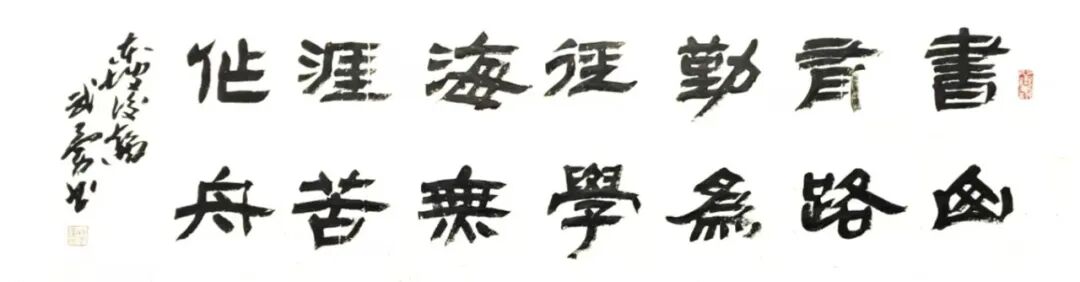 書山
有路
勤為
徑學
海無
涯苦
作舟